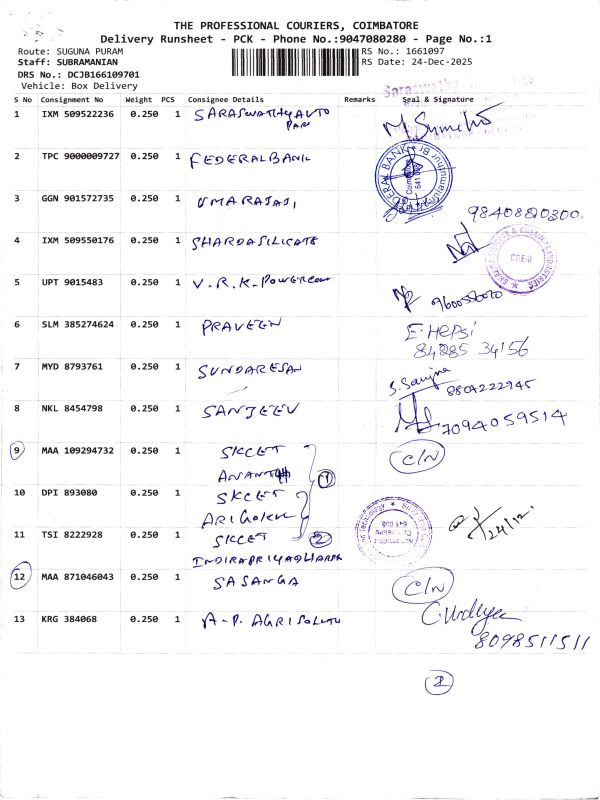 THE PROFESSIONAL COURIERS, COIMBATORE
Delivery Runsheet - PCK - Phone No.:9047080280 - Page No.:1
Route: SUGUNA PURAM RS No.: 1661097
Staff: SUBRAMANIAN RS Date: 24-Dec-2025
DRS No.: DCJB166109701
Vehicle: Box Delivery
S No Consignment No Weight PCS Consignee Details Remarks Seal & Signature
1 IXM 509522236 0.250 1 SARASWATHY AUTO
PARE
2 TPC 9000009727 0.250 1 FEDERAL BANK
3 GGN 901572735 0.250 1 UMARAJAJI 9840820300.
4 IXM 509550176 0.250 1 SHARDASILICATE
5 UPT 9015483 0.250 1 V.R.K. POWERCON
6 SLM 385274624 0.250 1 PRAVEEN E. Hepsi
84285 34156
7 MYD 8793761 0.250 1 SUNDARESAN 8807222945
8 NKL 8454798 0.250 1 SANJEEV 7094059514
9 MAA 109294732 0.250 1 SKCET C/N
1
10 DPI 893080 0.250 1 SKCET
ARIGOKUL
11 TSI 8222928 0.250 1 SKCET 2 24/12.
INDIRAPRIYADHARSH
12 MAA 871046043 0.250 1 SASANGA C/N
13 KRG 384068 0.250 1 A.P. AGRI
8098511511
2